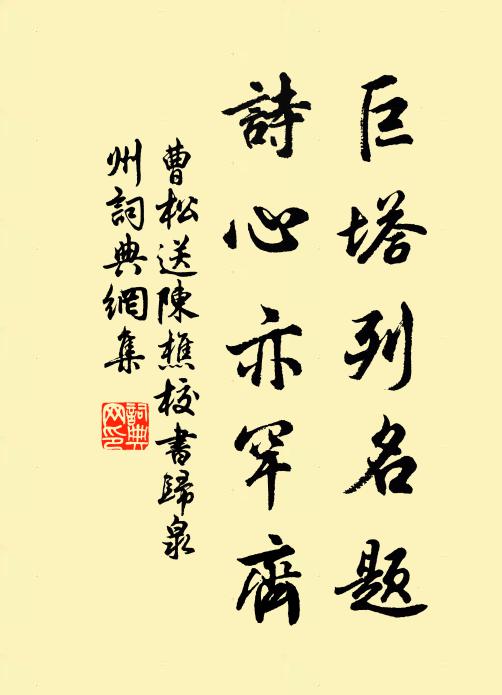 巨塔列名题
詩心亦罕齊
曹松送陳樵校書歸泉
州詞典網集
詞典网印